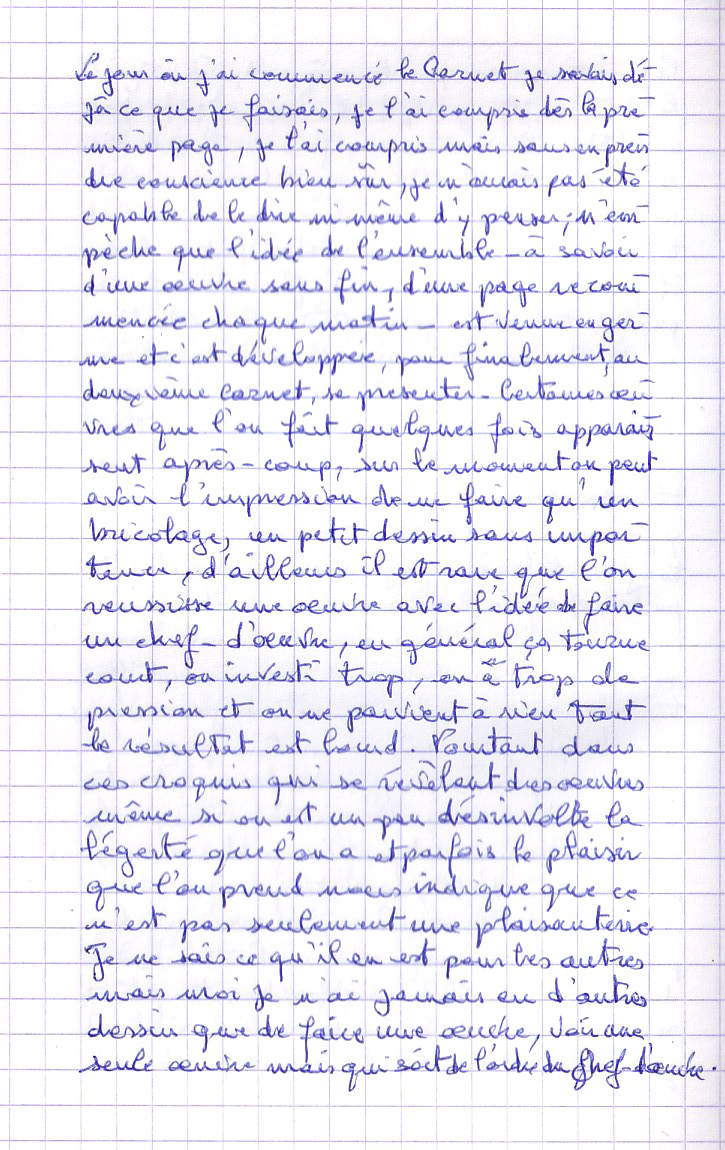 Le jour où j'ai commencé le Carnet je savais dé-
jà ce que je faisais, je l'ai compris dès la pre-
mière page, je l'ai compris mais sans en pren-
dre conscience bien sûr, je n'aurais pas été
capable de le dire ni même d'y penser; n'em-
pèche que l'idée de l'ensemble - à savoir
d'une oeuvre sans fin, d'une page recom-
mencée chaque matin - est venue en ger-
me et c'est développée, pour finalement, au
deuxième Carnet, se présenter. Certaines oeu-
vres que l'on fait quelques fois apparais-
sent après-coup, sur le moment on peut
avoir l'impression de ne faire qu'un
bricolage, un petit dessin sans impor-
tance, d'ailleurs il est rare que l'on
réussisse une oeuvre avec l'idée de faire
un chef-d'oeuvre, en général ça tourne
court, on investi trop, on a trop de
pression et on ne parvient à rien tant
le résultat est lourd. Pourtant dans
ces croquis qui se révèlent des oeuvres
même si on est un peu désinvolte la
légerté que l'on a et parfois le plaisir
que l'on prend nous indique que ce
n'est pas seulement une plaisanterie.
Je ne sais ce qu'il en est pour les autres
mais moi je n'ai jamais eu d'autres
dessin que de faire une oeuvre, voir une
seule oeuvre mais qui soit de l'ordre du Chef-d'oeuvre.